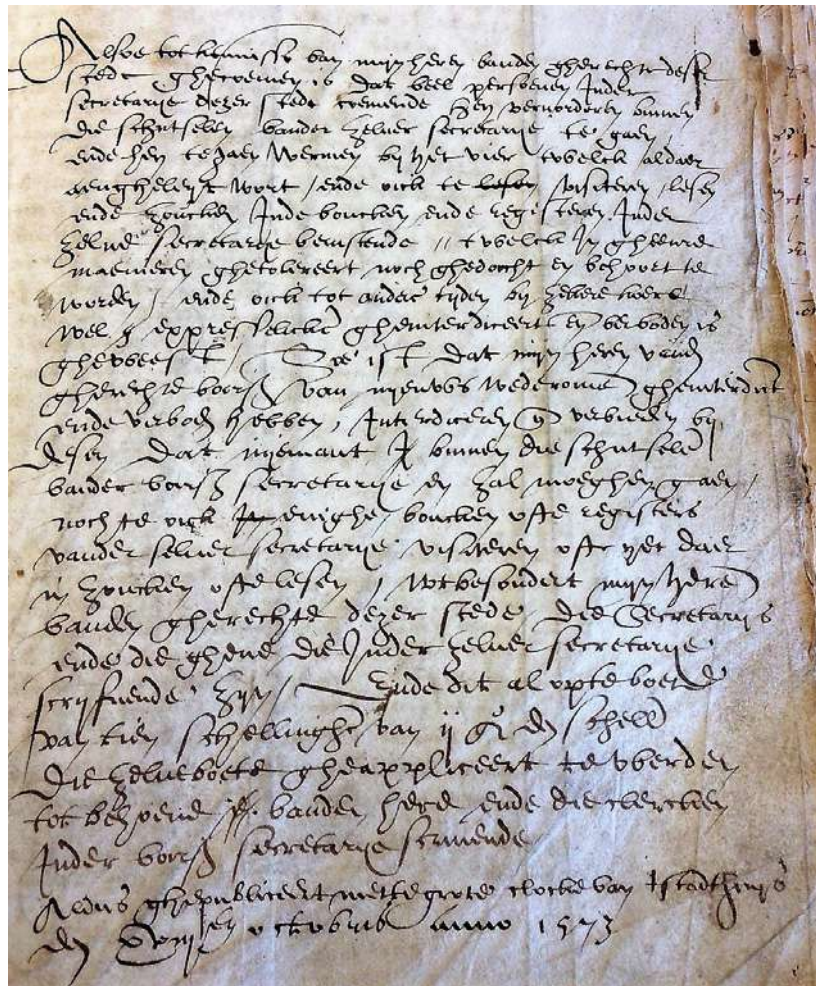 Alsoe tot kennisse van mijn heren vanden gherechte deser
stede ghecomen is dat veel persoenen Inder
secretarije dezer stede comende hen vervorderen binnen
die schutselen vander zelver secretarije te gaen
ende hen te gaen wermen bij het vier twelck aldaer
aengheleyt wort / ende oick te lesen visiteren lesen
ende zoucken Inde boucken ende registeren Inder
zelver secretarije berustende // twelck In gheenre
manieren ghetolereert noch ghedocht en behoort te
worden / ende oick tot ander tijden bij zekere keere
wel expresselicken gheinterdiceert en verboden is
gheweest / Soe ist dat mijn heren vanden
gherechte voorsz van nyeuws wederomme gheinterdict
ende verboden hebben, Interdiceren en verbieden bij
desen dat nyemant binnen die schutselen
vander voorsz secretarije en zal moeghen gaen /
noch te oick enighe boucken ofte registers
vander selver secretarije visiteren ofte yet daer
in zoucken ofte lesen / wtbesondert mijn heren
vanden gherechte dezer stede die Secretarijs
ende die ghene die Inder zelver secretarije
scrijfvende zijn / Ende dit al opte boete
van tien schellinghen van ij gr den schell
die zelve boete gheappliceert te werden
tot behoeve vanden here ende die clercken
Inder voorsz secretarije scrivende
Aldus ghepubliceert mette grote clocke van tstadthuys
den en octobris anno 1573